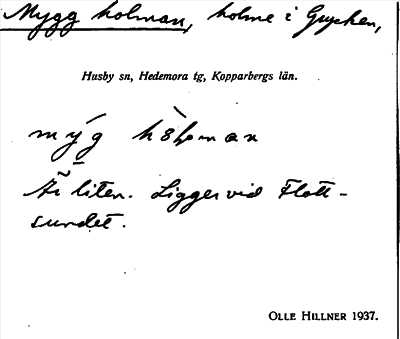 Mygg holman, holme i Grycken,
Husby sn, Hedemora tg, Kopparbergs län.
Är liten. Ligger vid Flott-
sundet.
OLLE HILLNER 1937.